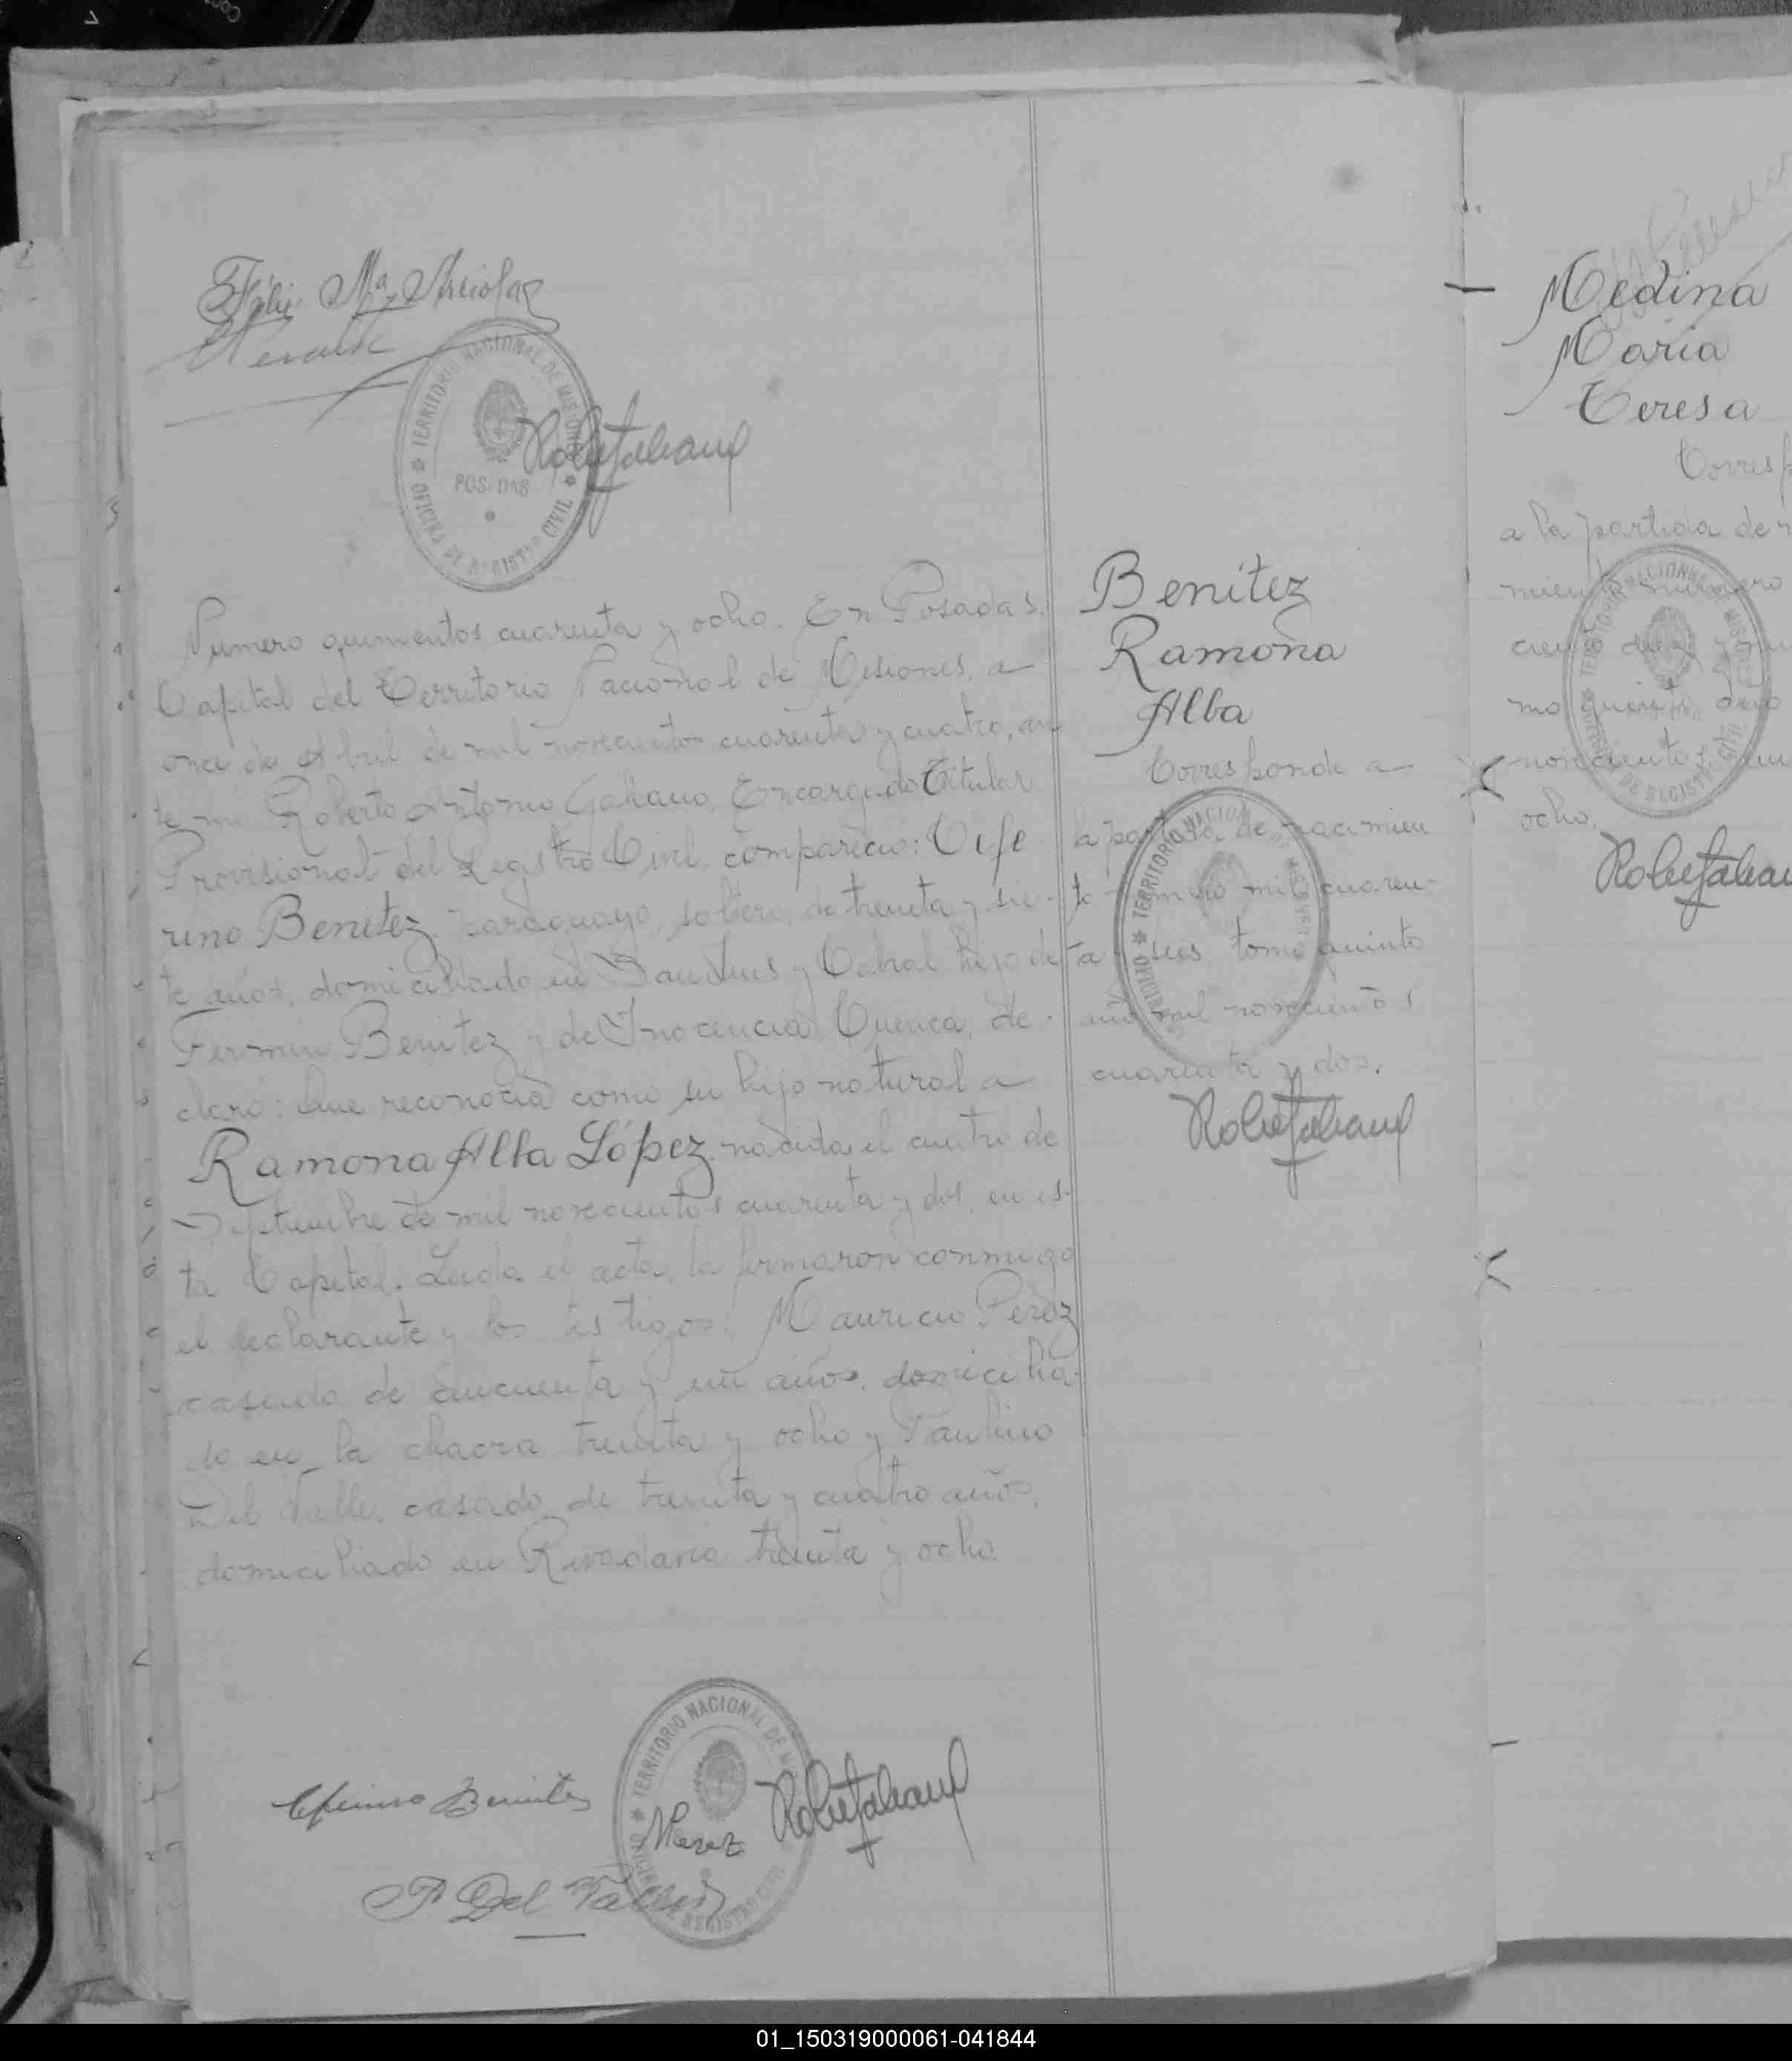 Felix Ma Arriola
TERRITORIO NACIONAL DE MISIONES
POSADAS
OFICINA DE REGISTRO CIVIL
Numero quinientos cuarenta y ocho. En Posadas,
Capital del Territorio Nacional de Misiones, a
once de Abril de mil novecientos cuarenta y cuatro, an
te mi Roberto Antonio Galiano, Encargado Titular
Provisional del Registro Civil, compareció: Cefe
rino Benitez, paraguayo, soltero, de treinta y sie-
te años, domiciliado en San Luis y Cabral hijo de
Fermin Benitez y de Inocencia Cuenca, de-
claró: Que reconocia como su hijo natural a
Ramona Alba López, nacida el cuatro de
Septiembre de mil novecientos cuarenta y dos, en es-
ta Capital. Leida el acta, la firmaron conmigo
el declarante y los testigos: Mauricio Perez
casado de cincuenta y un años, domicilia-
do en la chacra treinta y ocho y Paulino
Del Valle, casado, de treinta y cuatro años,
domiciliado en Rivadavia treinta y ocho.
Ceferino Benitez
MPerez
P Del Valle
TERRITORIO NACIONAL DE
REGISTRO CIVIL
Benitez
Ramona
Alba
Corresponde a
la partida de nacimien
to número mil cuaren-
ta y seis, tomo quinto
año mil novecientos
cuarenta y dos.
TERRITORIO NACIONAL
Medina
Maria
Teresa
Corresp
a la partida de n
miento número
ciento diez
mo quinto año
novecientos
ocho.
01_150319000061-041844